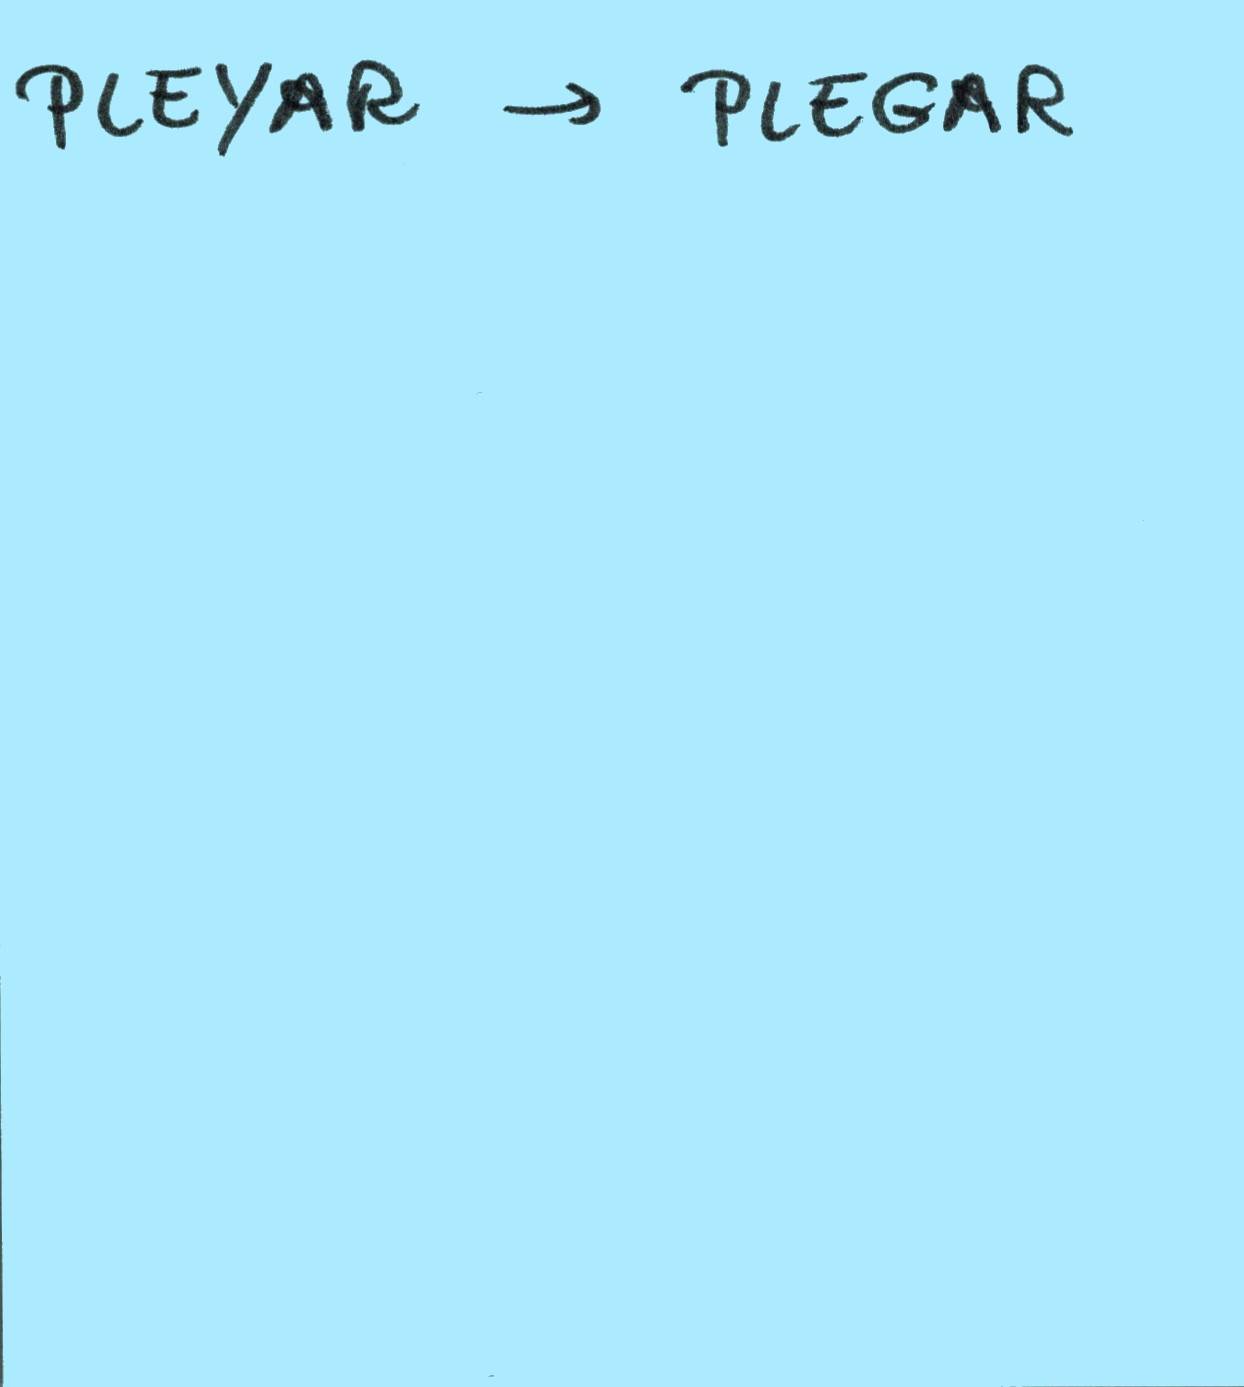 PLEYAR → PLEGAR